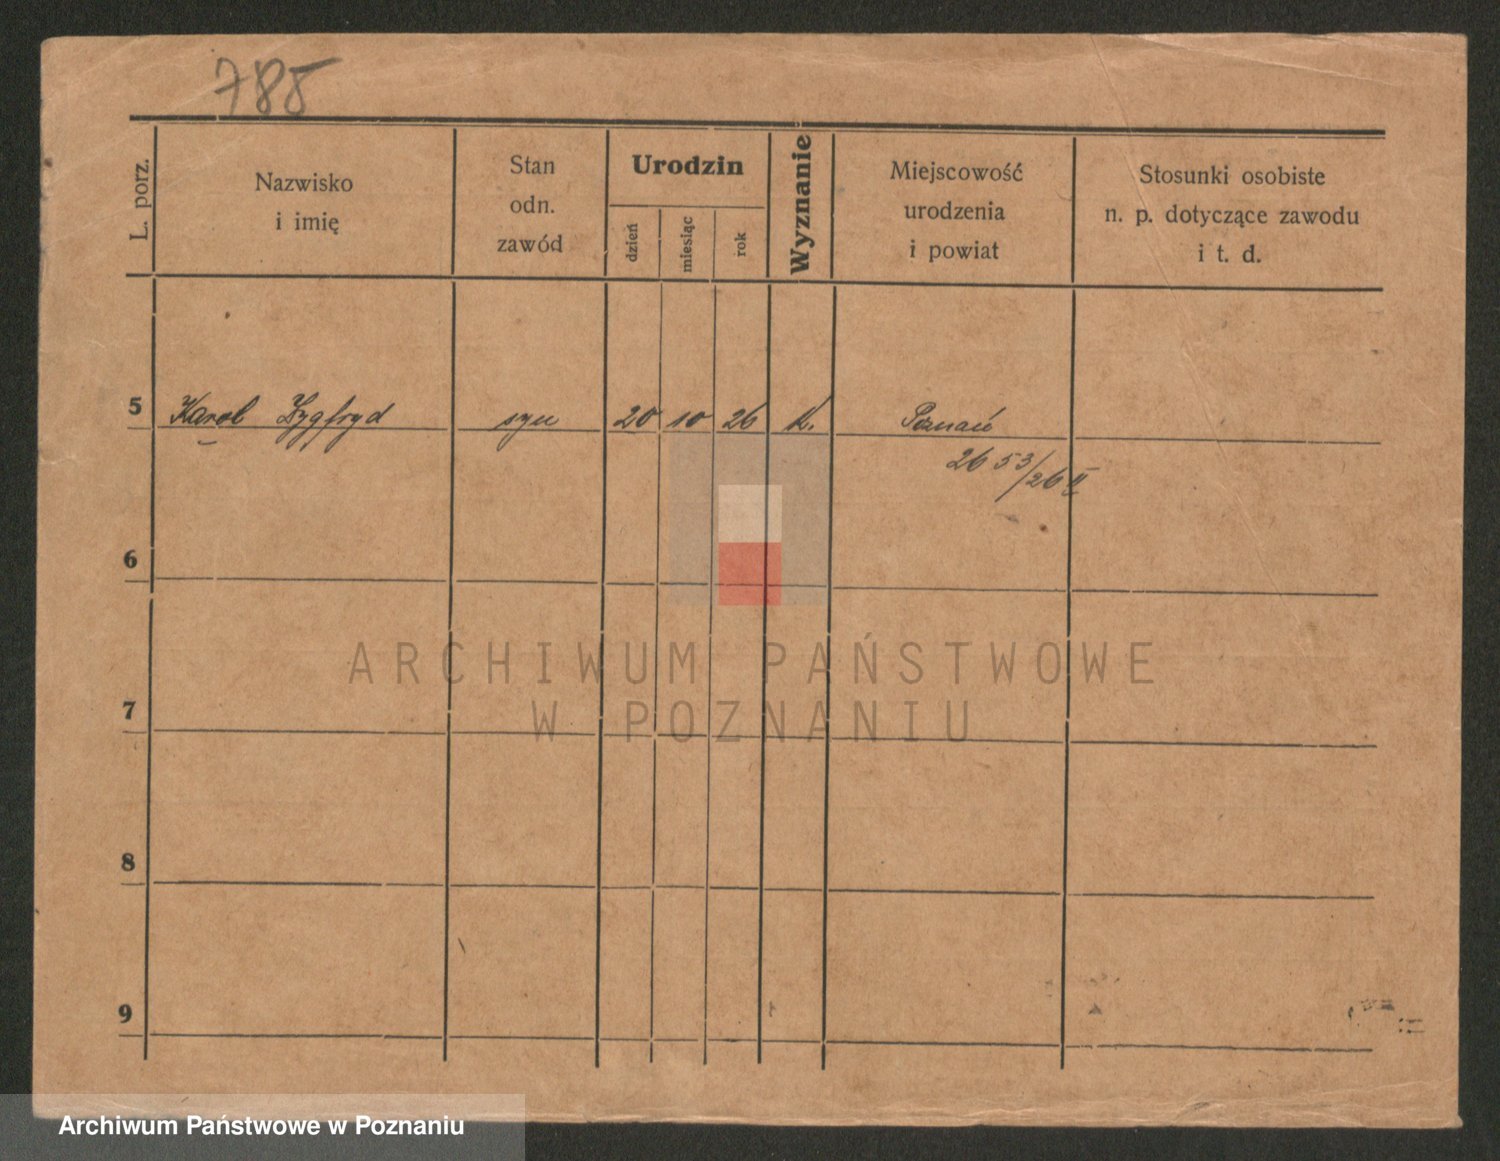 785
L. porz.
Nazwisko
i imię
Stan
odn.
zawód
Urodzin
dzień
miesiąc
rok
Wyznanie
Miejscowość
urodzenia
i powiat
Stosunki osobiste
n. p. dotyczące zawodu
i t. d.
5 Karol Zygfryd syn 20 10 26 k. Poznań
26 53/26 II
6
7
8
9
ARCHIWUM PAŃSTWOWE
W POZNANIU
Archiwum Państwowe w Poznaniu